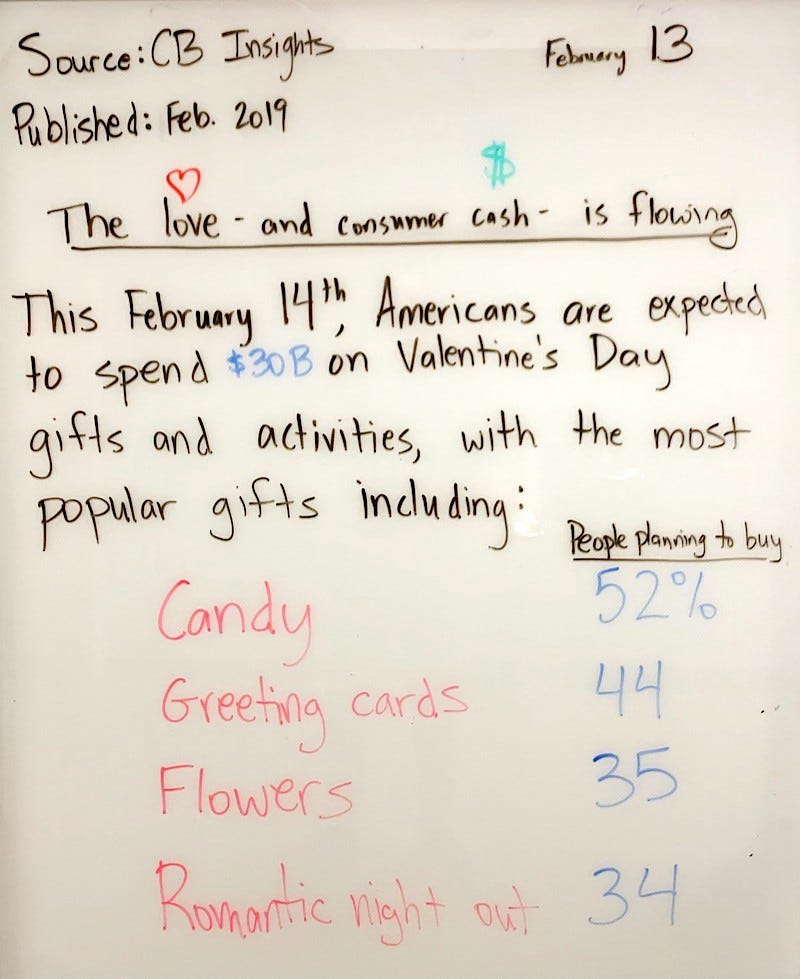 Source: CB Insights
February 13
Published: Feb. 2019
$
The love - and consumer cash - is flowing
This February 14th, Americans are expected
to spend $30B on Valentine's Day
gifts and activities, with the most
popular gifts including:
People planning to buy
Candy 52%
Greeting cards 44
Flowers 35
Romantic night out 34